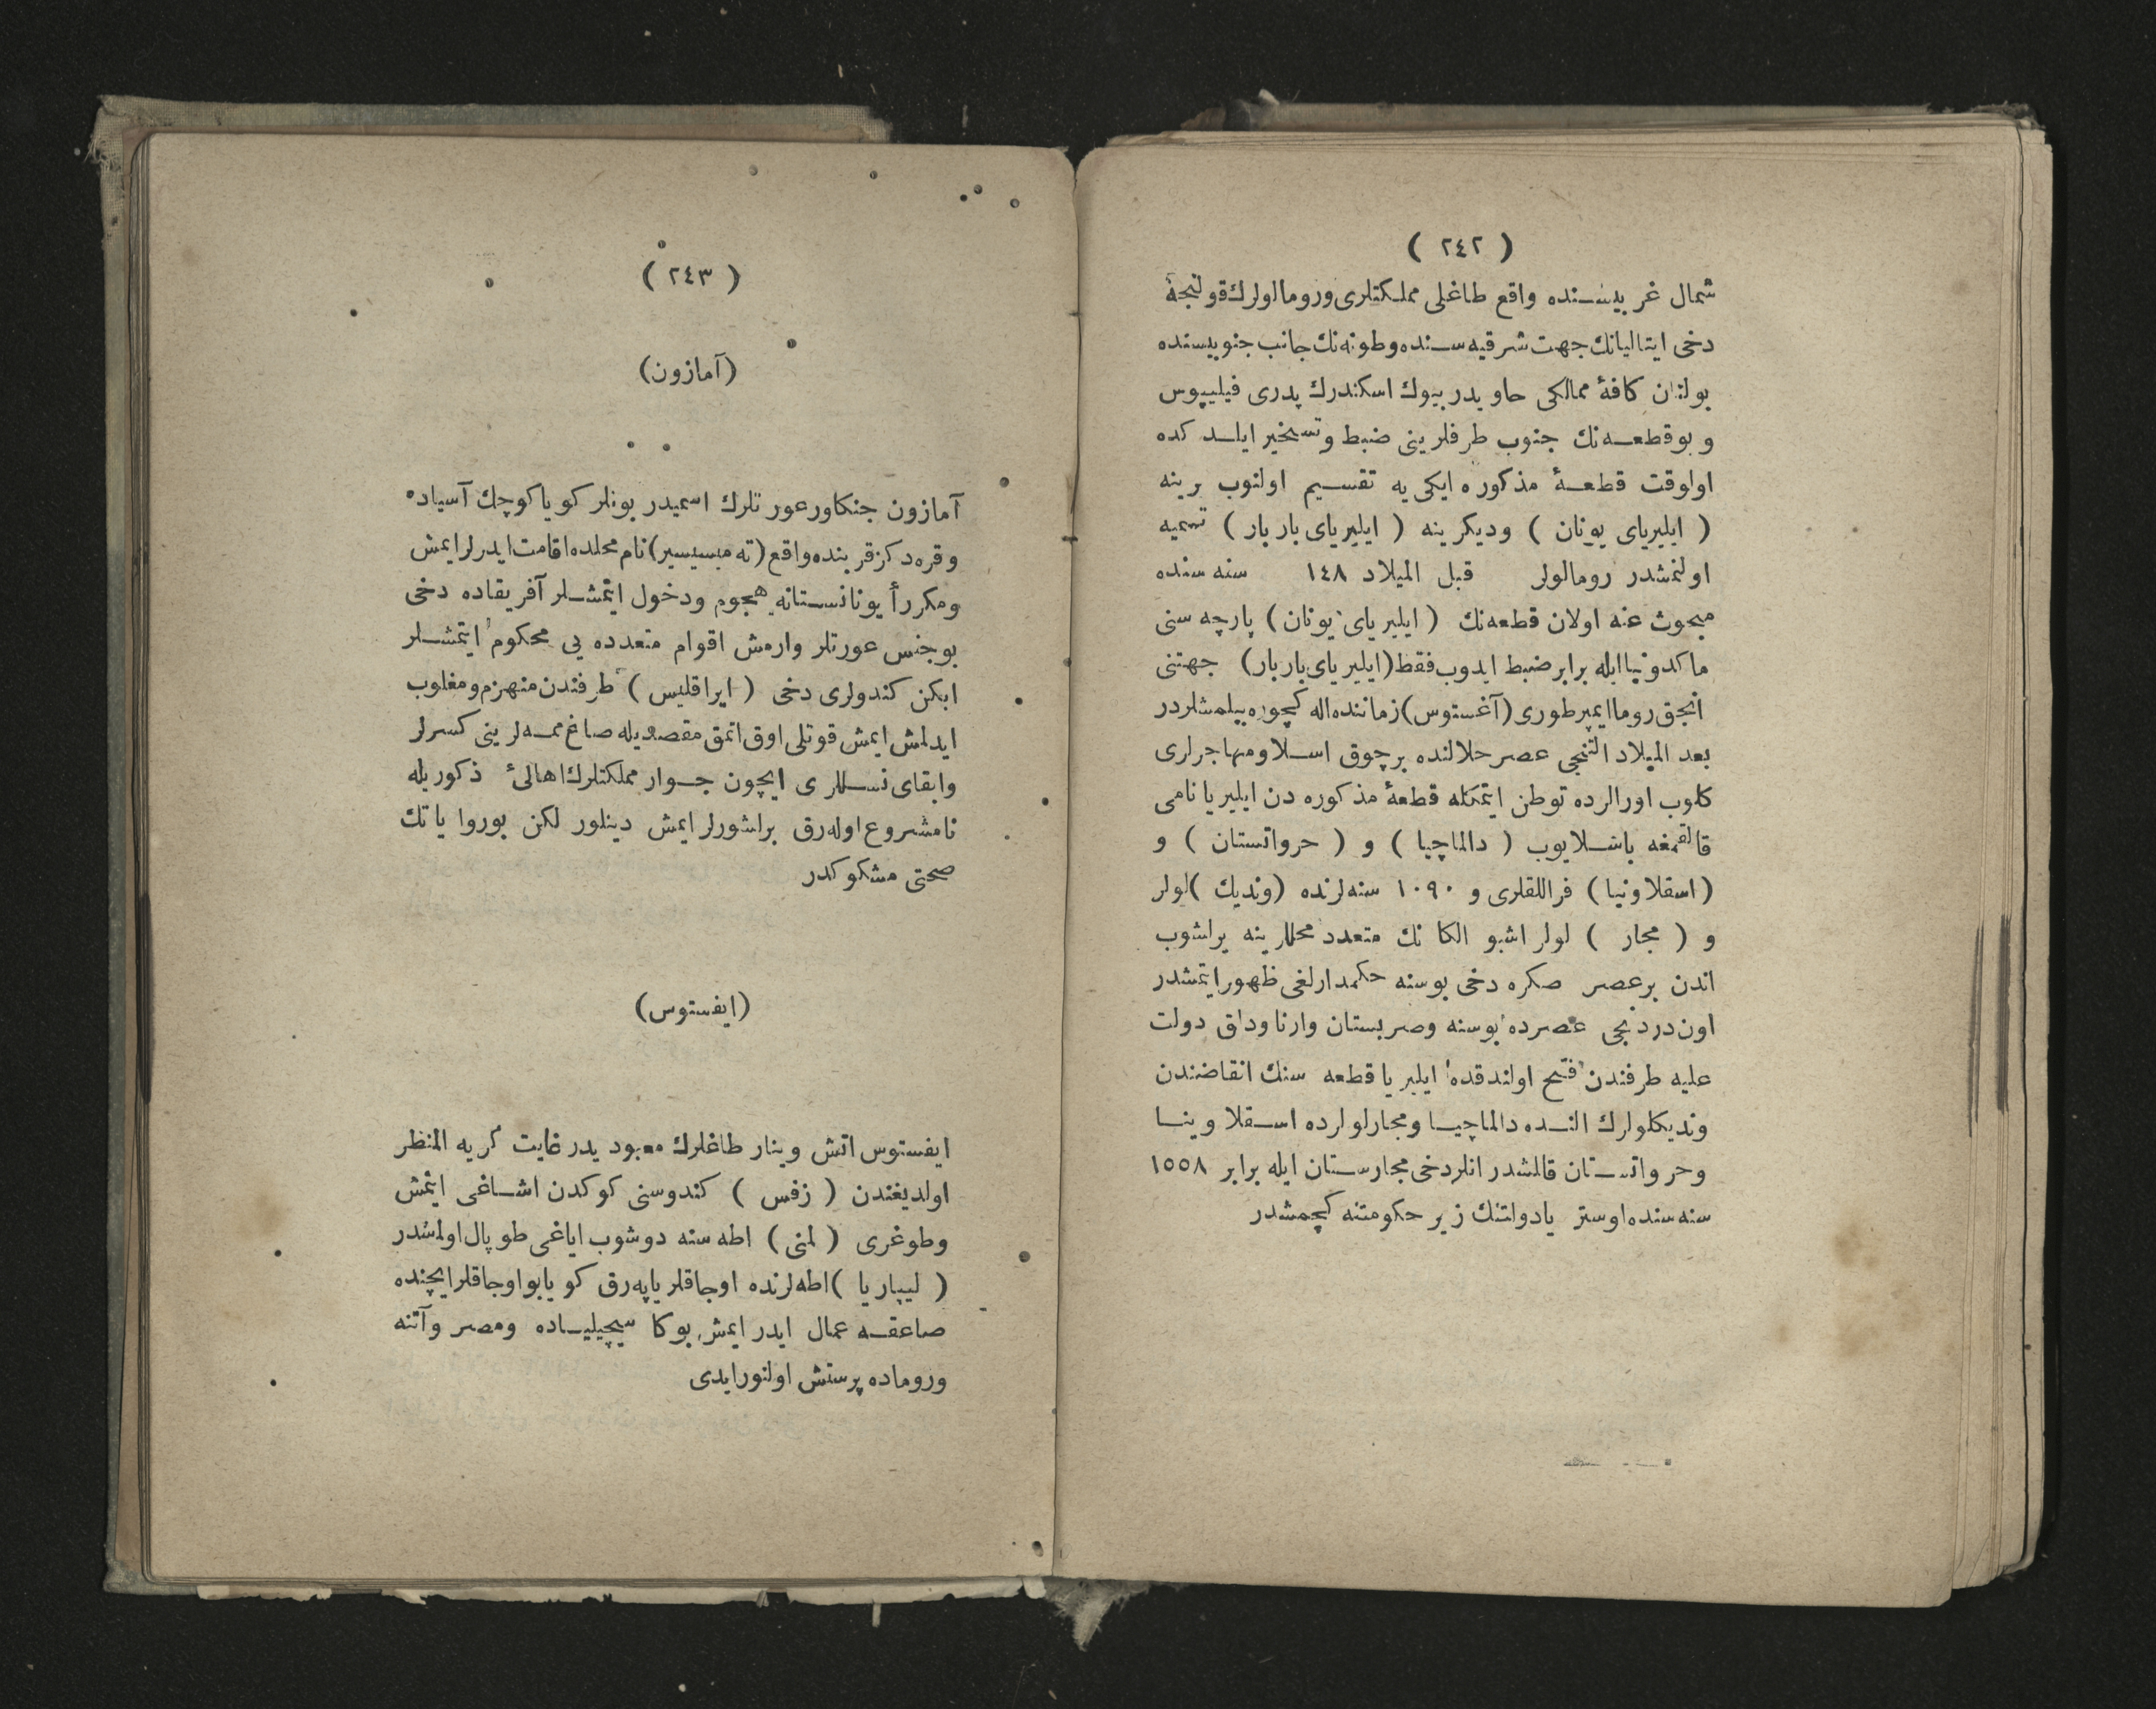 ( ٢٤٢ )
شمال غربیسنده واقع طاغلی مملکتلری ورومالولرك قولنجهٔ
دخی ایتالیانك جهت شرقیه سنده وطونه نك جانب جنوبیسنده
بولنان کافهٔ ممالکی حاویدر بیوك اسکندرك پدری فیلیپوس
و بو قطعه نك جنوب طرفلرینی ضبط وتسخیر ایلدکده
اولوقت قطعهٔ مذکوره ایکی یه تقسیم اولنوب برینه
( ایلیریای یونان ) ودیکرینه ( ایلیریای باربار ) تسمیه
اولنمشدر رومالولر قبل المیلاد ١٤٨ سنه سنده
مبحوث عنه اولان قطعه نك ( ایلیریای یونان ) پارچه سنی
ماکدونیا ایله برابر ضبط ایدوب فقط (ایلیریای باربار) جهتنی
انجق روما ایمپرطوری (آغستوس) زماننده اله کچوره بیلمشلردر
بعد المیلاد التنجی عصر حلالنده برچوق اسلاو مهاجرلری
کلوب اورالرده توطن ایتمکله قطعهٔ مذکوره دن ایلیریا نامی
قالقمغه باشلایوب ( دالماچیا ) و ( حرواتستان ) و
(اسقلاونیا) قراللقلری و ١٠٩٠ سنه لرنده (وندیك) لولر
و ( مجار ) لولر اشبو الکا نك متعدد محللرینه یرلشوب
اندن برعصر صکره دخی بوسنه حکمدارلغی ظهور ایتمشدر
اون دردنجی عصرده بوسنه وصربستان وارناودلق دولت
علیه طرفندن فتح اولندقده ایلیریا قطعه سنك انقاضندن
وندیکلولرك النده دالماچیا ومجارلولرده اسقلاوینا
وحرواتستان قالمشدر انلردخی مجارستان ایله برابر ١٥٥٨
سنه سنده اوستریا دولتنك زیر حکومتنه کچمشدر
( ٢٤٣ )
(آمازون)
آمازون جنکاور عورتلرك اسمیدر بونلر کویا کوچك آسیاده
وقره دکز قربنده واقع (ته میسیسیر) نام محلده اقامت ایدرلر ایمش
ومکرراً یونانستانه هجوم ودخول ایتمشلر آفریقاده دخی
بوجنس عورتلر وارمش اقوام متعدده یی محکوم ایتمشلر
ایکن کندولری دخی ( ایراقلیس ) طرفندن منهزم ومغلوب
ایدلمش ایمش قوتلی اوق اتمق مقصدیله صاغ ممه لرینی کسرلر
وابقای نسللری ایچون جوار مملکتلرك اهالیٔ ذکوریله
نامشروع اوله رق برلشورلر ایمش دینلور لکن بوروایاتك
صحتی مشکوکدر
(ایفستوس)
ایفستوس اتش وینار طاغلرك معبودیدر غایت کریه المنظر
اولدیغندن ( زفس ) کندوسنی کوکدن اشاغی ایتمش
وطوغری ( لمنی ) اطه سنه دوشوب ایاغی طوپال اولمشدر
( لیپاریا ) اطه لرنده اوجاقلر یاپه رق کویا بو اوجاقلر ایچنده
صاعقه عمال ایدر ایمش بوکا سیچیلیاده ومصر وآتنه
وروماده پرستش اولنورایدی